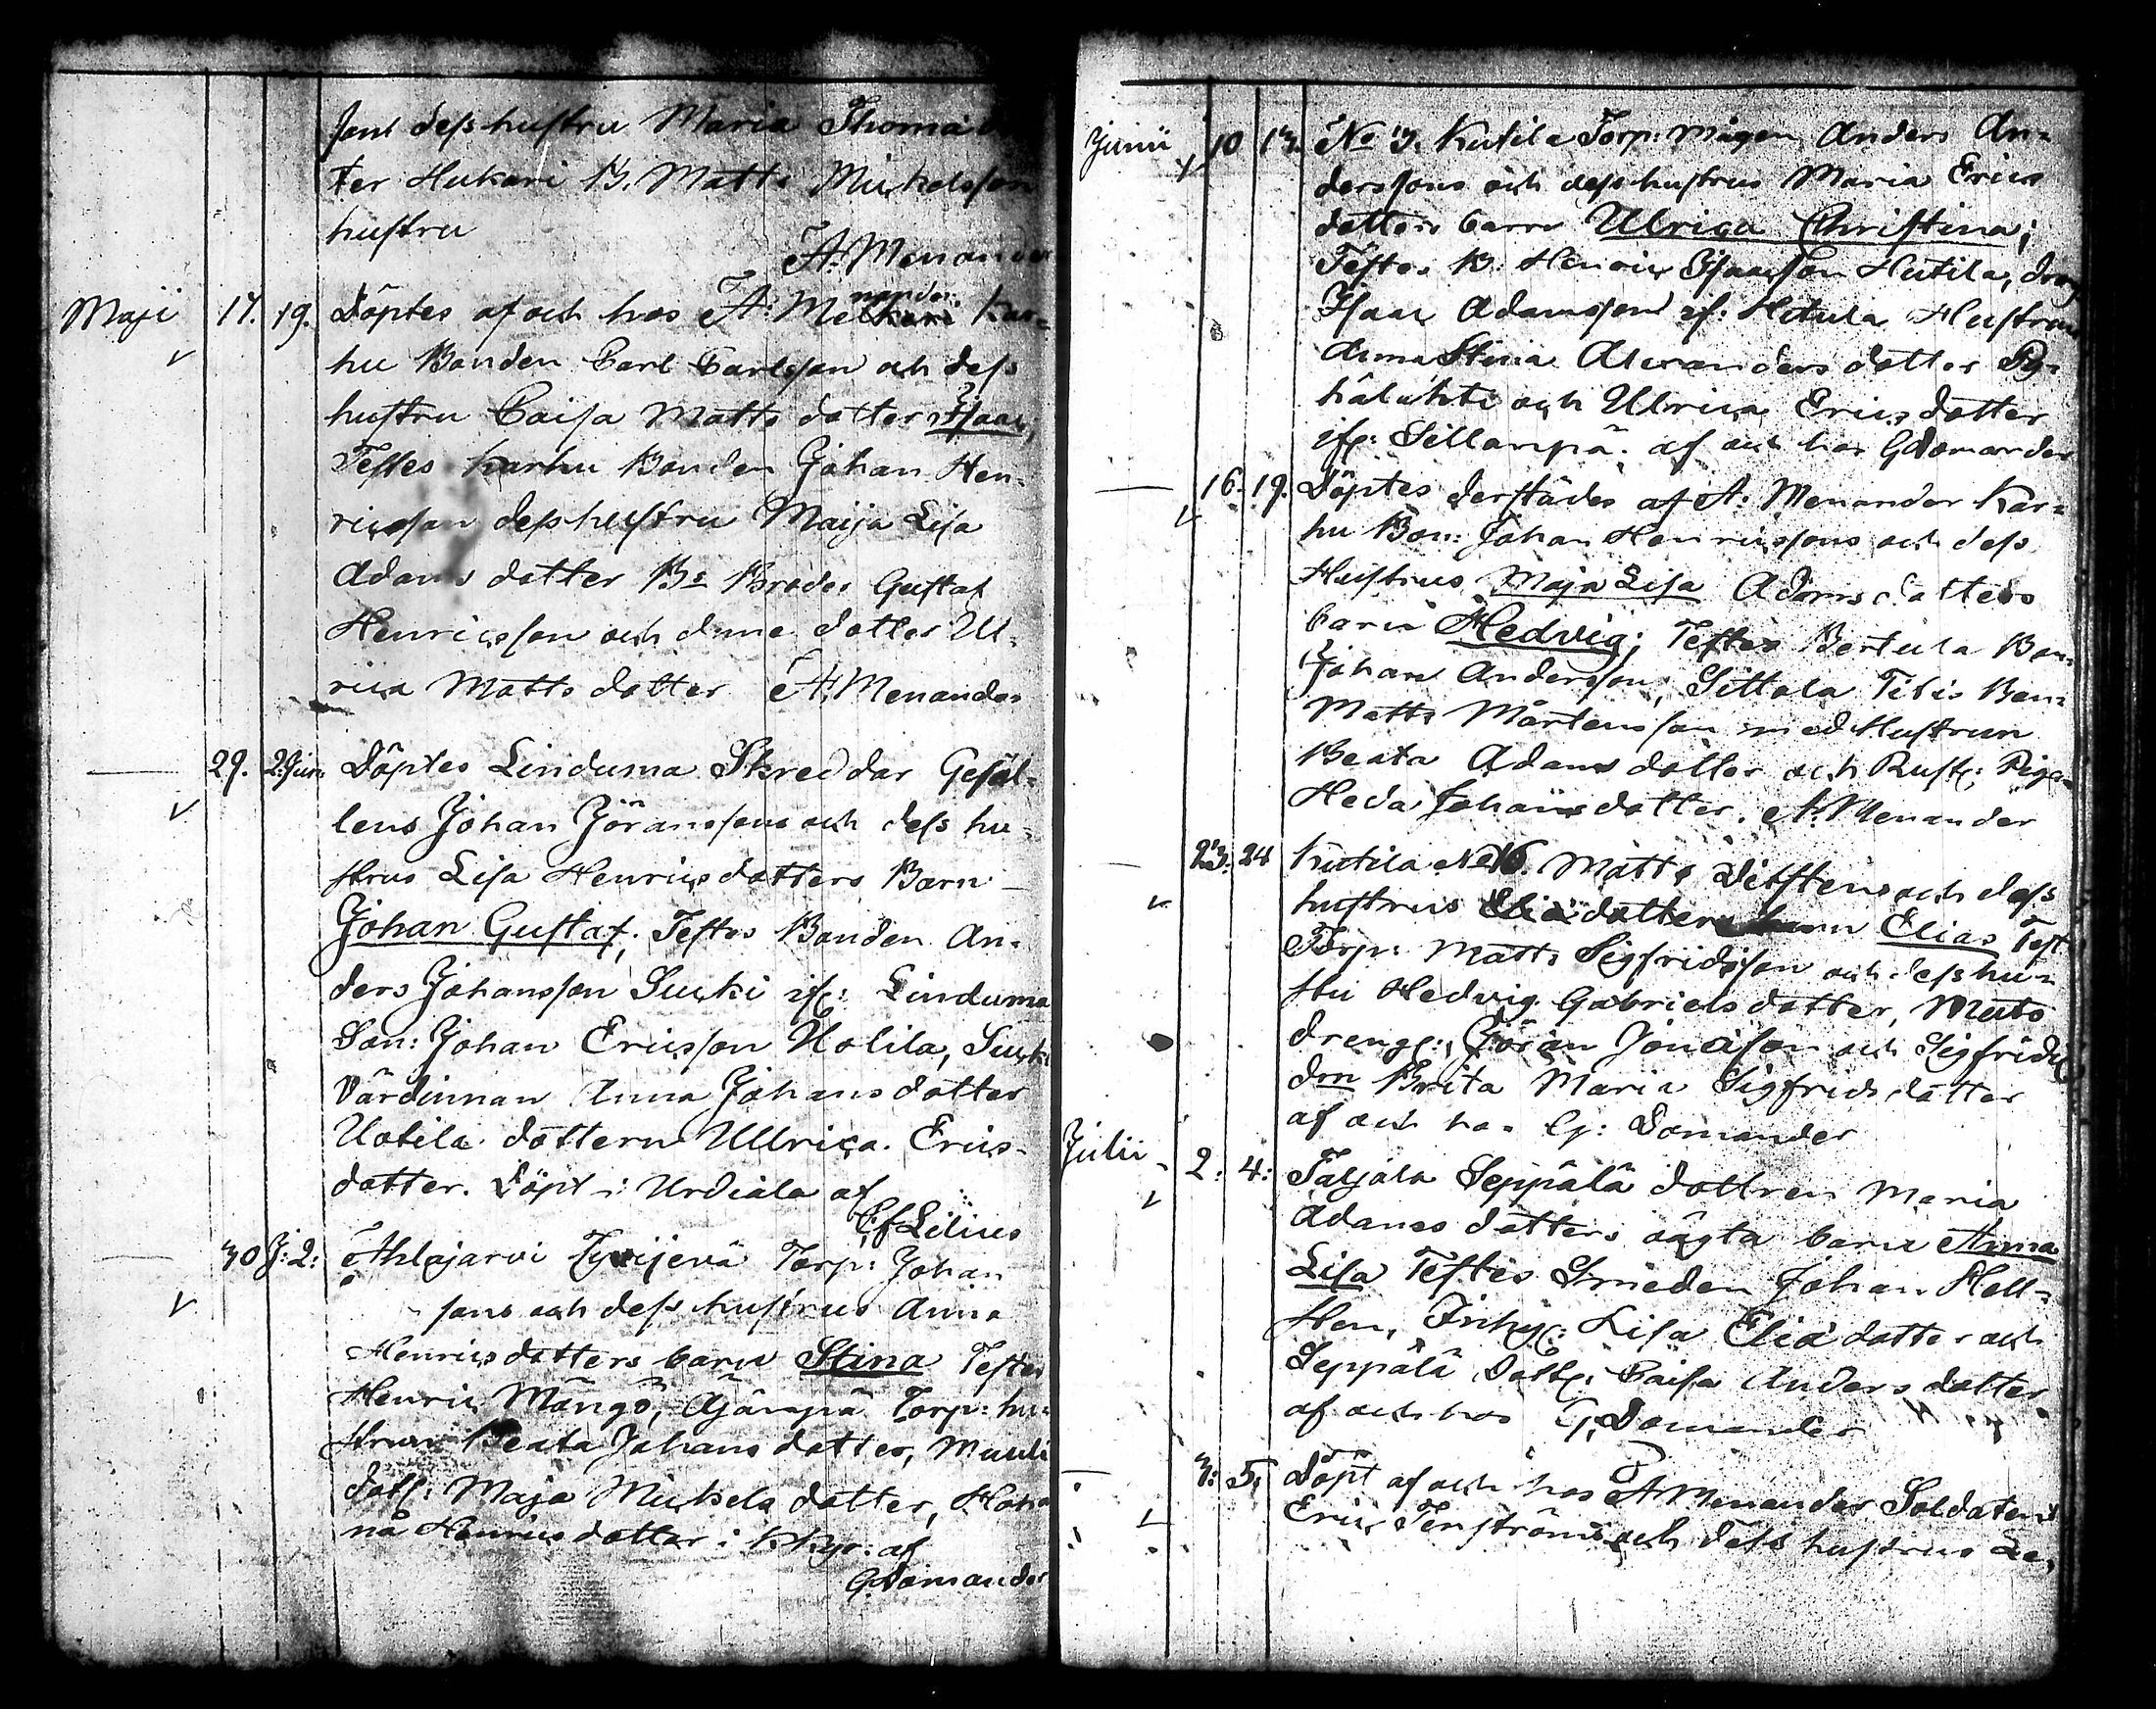 samt dess hustru Maria Thomædot-
ter Hukari B. Matts Mickelsson
hustru
A: Menander
Maji 17. 19. Döptes af och hos A: Menander Kar-
hu Bonden Carl Carlsson och dess
hustru Caisa Matts dotter Isaac,
Testes Karhu Bonden Johan Hen-
ricsson dess hustru Maija Lisa
Adams dotter Bs Broder Gustaf
Henricsson och dune dotter Ul-
rica Matts dotter A: Menander
29. 2. Jun: Döptes Linduma Skreddar Gesäl-
lens Johan Jöranssons och dess hu-
strus Lisa Henricsdotters Barn
Johan Gustaf; Testes Bonden An-
ders Johansson Sucki if: Linduma
Son: Johan Ericsson Uotila, Sucki
Värdinnan Anna Johans dotter
Uotila dottern Ulrica Erics-
dotter. Döpt i Urdiala af
C: f Lilius
30 J: 2: Ahlajarvi Torp: Johan
sons och dess hustrus Anna
Henricsdotters barn Stina Testes
Henric Mångo, Äjänpä Torp: hu-
strun Beata Johans dotter,
dott: Maja Mickels dotter,
na Henrics dotter i Kkyr: af
G. Domander
Junii 10 13. No 3. Kutila Torp: Mågen Anders An-
derssons och dess hustrus Maria Erics
dotters barn Ulrica Christina;
Testes B: Henric Isaacsson Hutila, dreng
Isaac Adamsson if: Hutula Hustrun
Anna Stina Alexanders dotter Py-
hälahti och Ulrica Ericsdotter
if: Sillanpä. af och hos G Domander
16. 19. Döptes derstädes af A: Menander Kar-
hu Bon: Johan Henricssons och dess
Hustrus Maja Lisa Adamsdotters
barn Hedvig; Testes Bertula Bon:
Johan Andersson, Sittola Bon:
Matts Mårtensson med Hustrun
Beata Adams dotter och Rust: Piga
Heda Johans dotter. A. Menander
23. 24 Kutila No 16. Matts och dess
hustrus Eliædotters barn Elias Test
Torp: Matts Sigfridsson och dess hu-
stru Hedvig Gabriels dotter,
dreng: Jöran Jonasson och
Brita Maria Sigfrids dotter
af och hos G: Domander
Julii 2: 4: Taljala Seppälä dottren Maria
Adams dotters oägta barn Anna
Lisa Testes Smeden Johan Hell-
sten, Inhy: Lisa Eliæ dotter och
Seppälä Dott: Caisa Anders dotter
af och hos G: Domander
3: 5. Döpt af och hos A Menander Soldatens
Eric Fenströms och dess hustrus